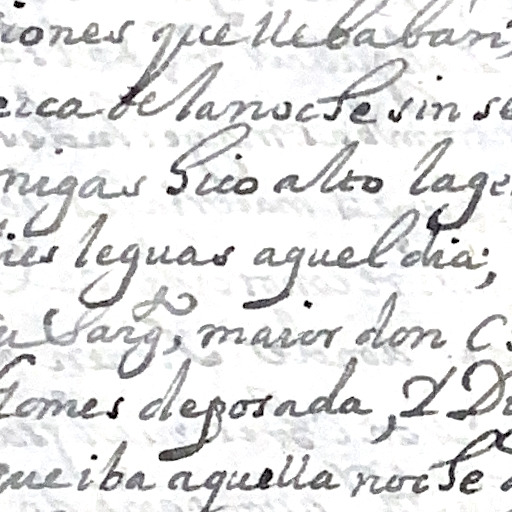 iones que llebaban,
erca de la noche sin se
migas hico alto la ge
dies leguas aquel dia;
Sargo, maior don C
Gomes de posada, Y D
que iba aquella noche